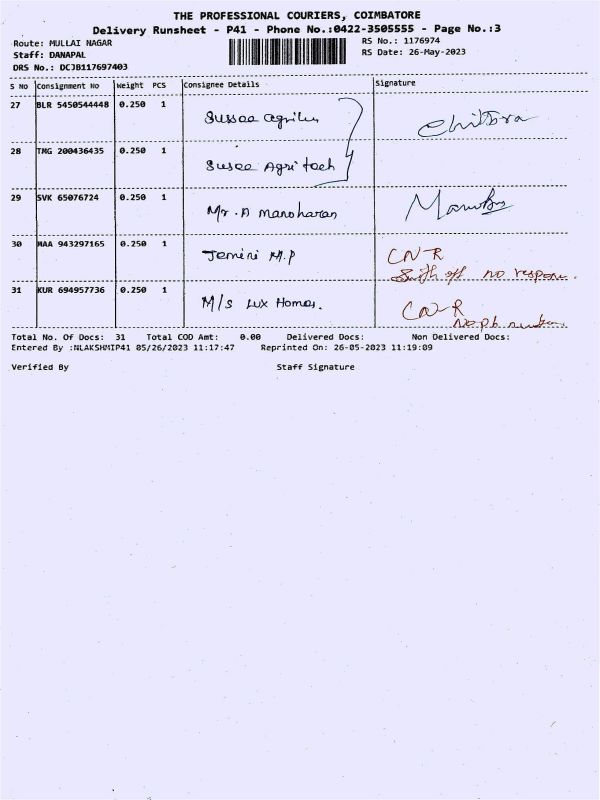 THE PROFESSIONAL COURIERS, COIMBATORE
Delivery Runsheet - P41 - Phone No.:0422-3505555 - Page No.:3
Route: MULLAI NAGAR
Staff: DANAPAL
DRS No.: DCJB117697403
RS No.: 1176974
RS Date: 26-May-2023
S No Consignment No Weight PCS Consignee Details Signature
27 BLR 5450544448 0.250 1 Chittra
28 TMG 200436435 0.250 1 Susee Agri tech
29 SVK 65076724 0.250 1 Mr. A Manoharan
30 MAA 943297165 0.250 1 Jemini M.P CN-R
no
31 KUR 694957736 0.250 1 M/s Lux Homes. CN-R
No ph.
Total No. Of Docs: 31 Total COD Amt: 0.00 Delivered Docs: Non Delivered Docs:
Entered By :NLAKSHMIP41 05/26/2023 11:17:47 Reprinted On: 26-05-2023 11:19:09
Verified By Staff Signature